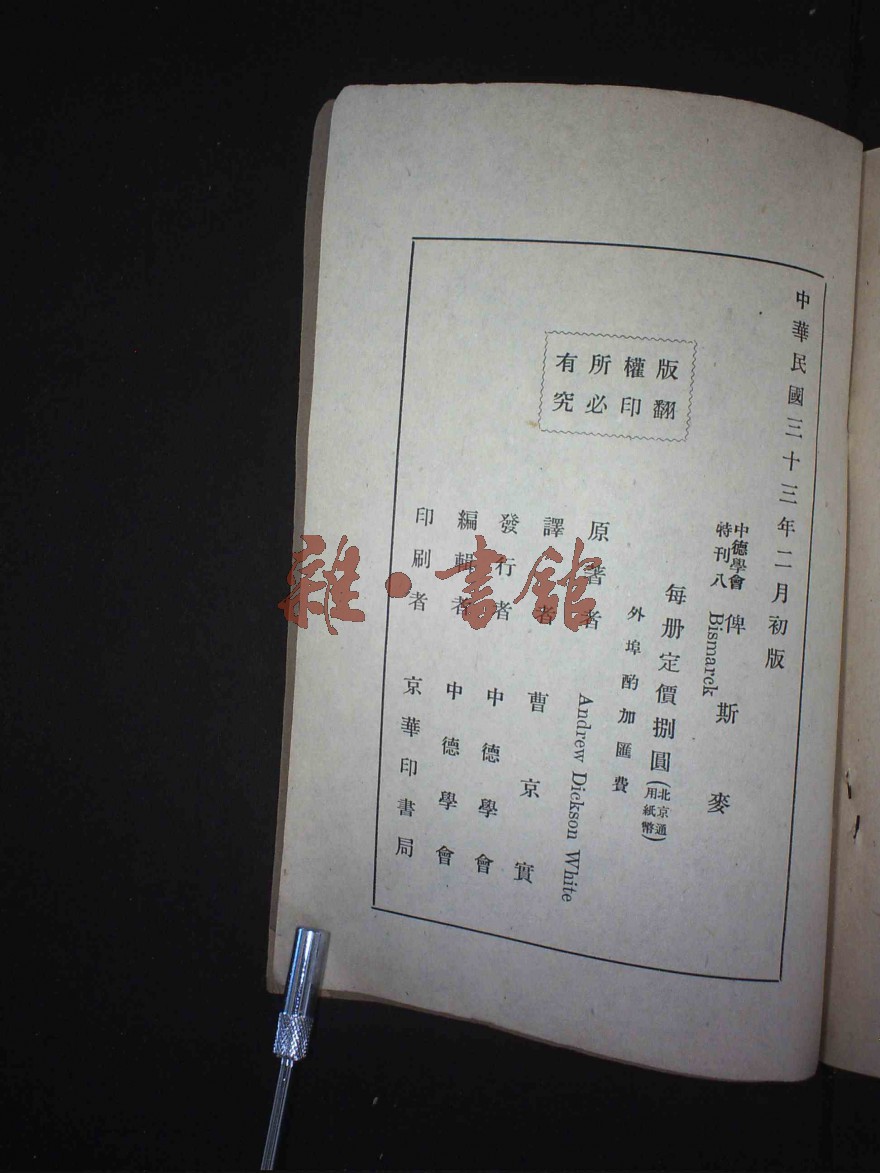 中華民國三十三年二月初版
中德學會
特刊八
俾斯麥
Bismarck
每册定價捌圓(北京通用紙幣)
外埠酌加匯費
原著者 Andrew Dickson White
譯者 曹京實
發行者 中德學會
編輯者 中德學會
印刷者 京華印書局
版權所有
翻印必究
雜·書館